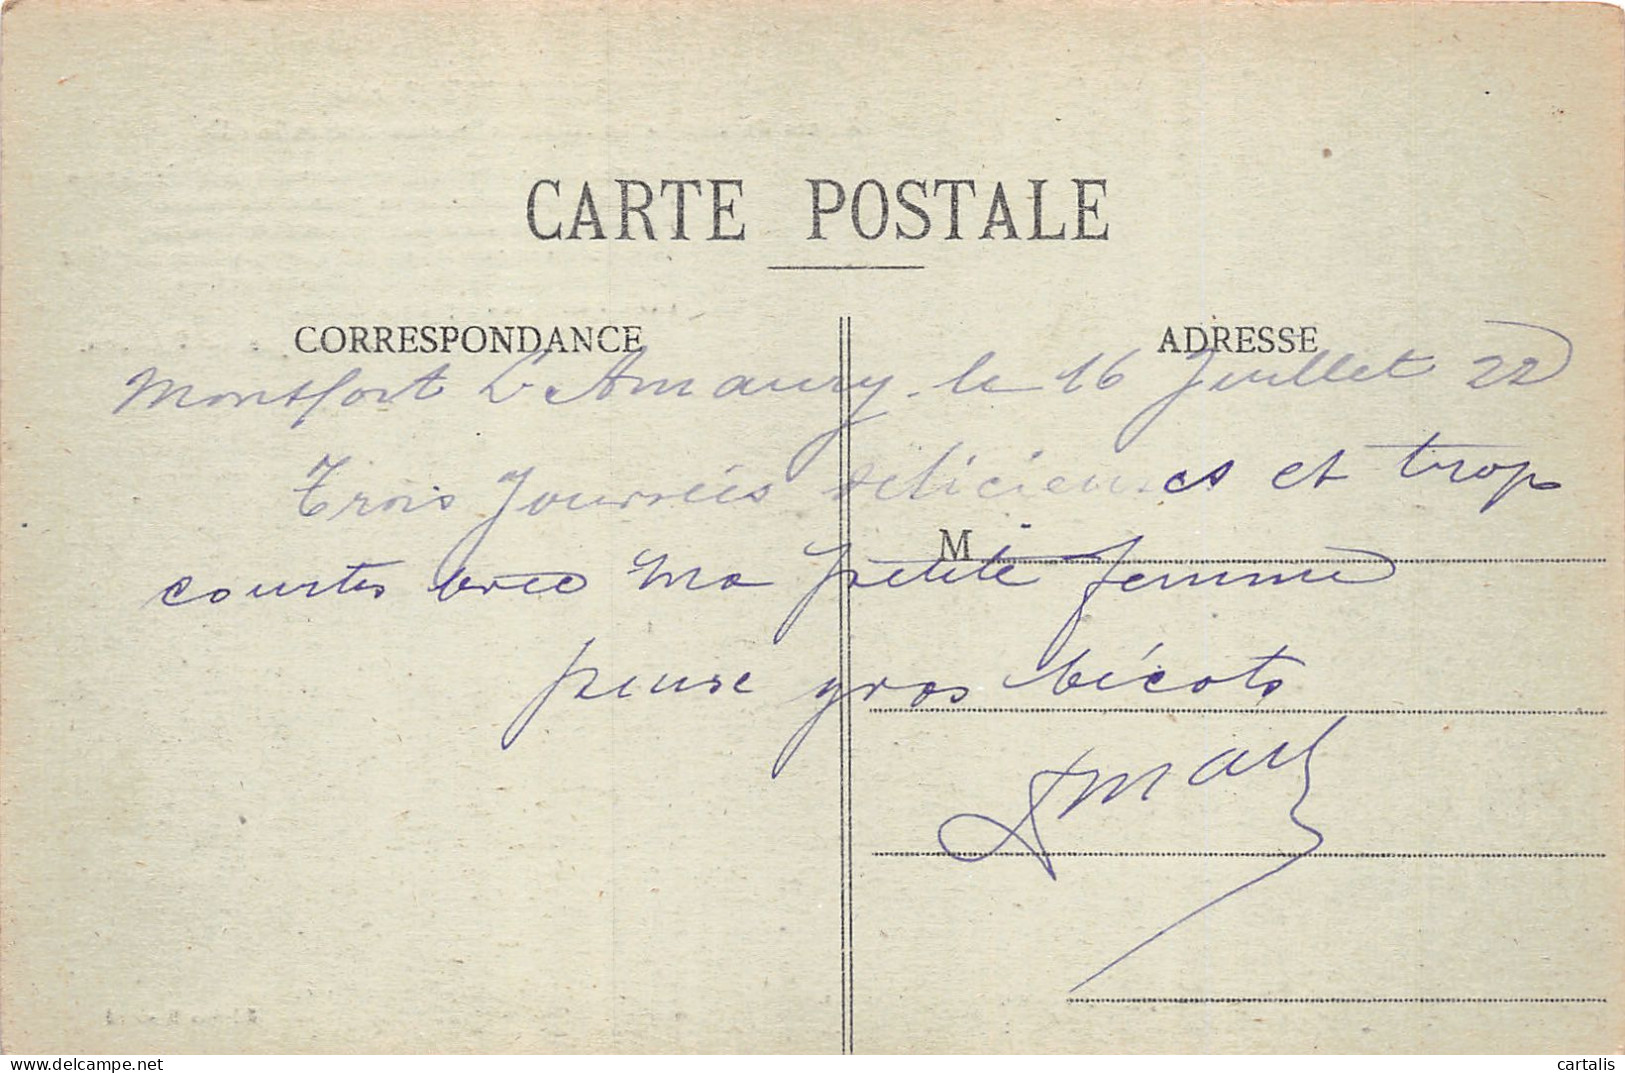 CARTE POSTALE
CORRESPONDANCE
ADRESSE
Montfort L'Amaury. le 16 Juillet 22
Trois Journées délicieuses et trop
M
courtes avec ma petite femme
gros bécots
cartalis
www.delcampe.net